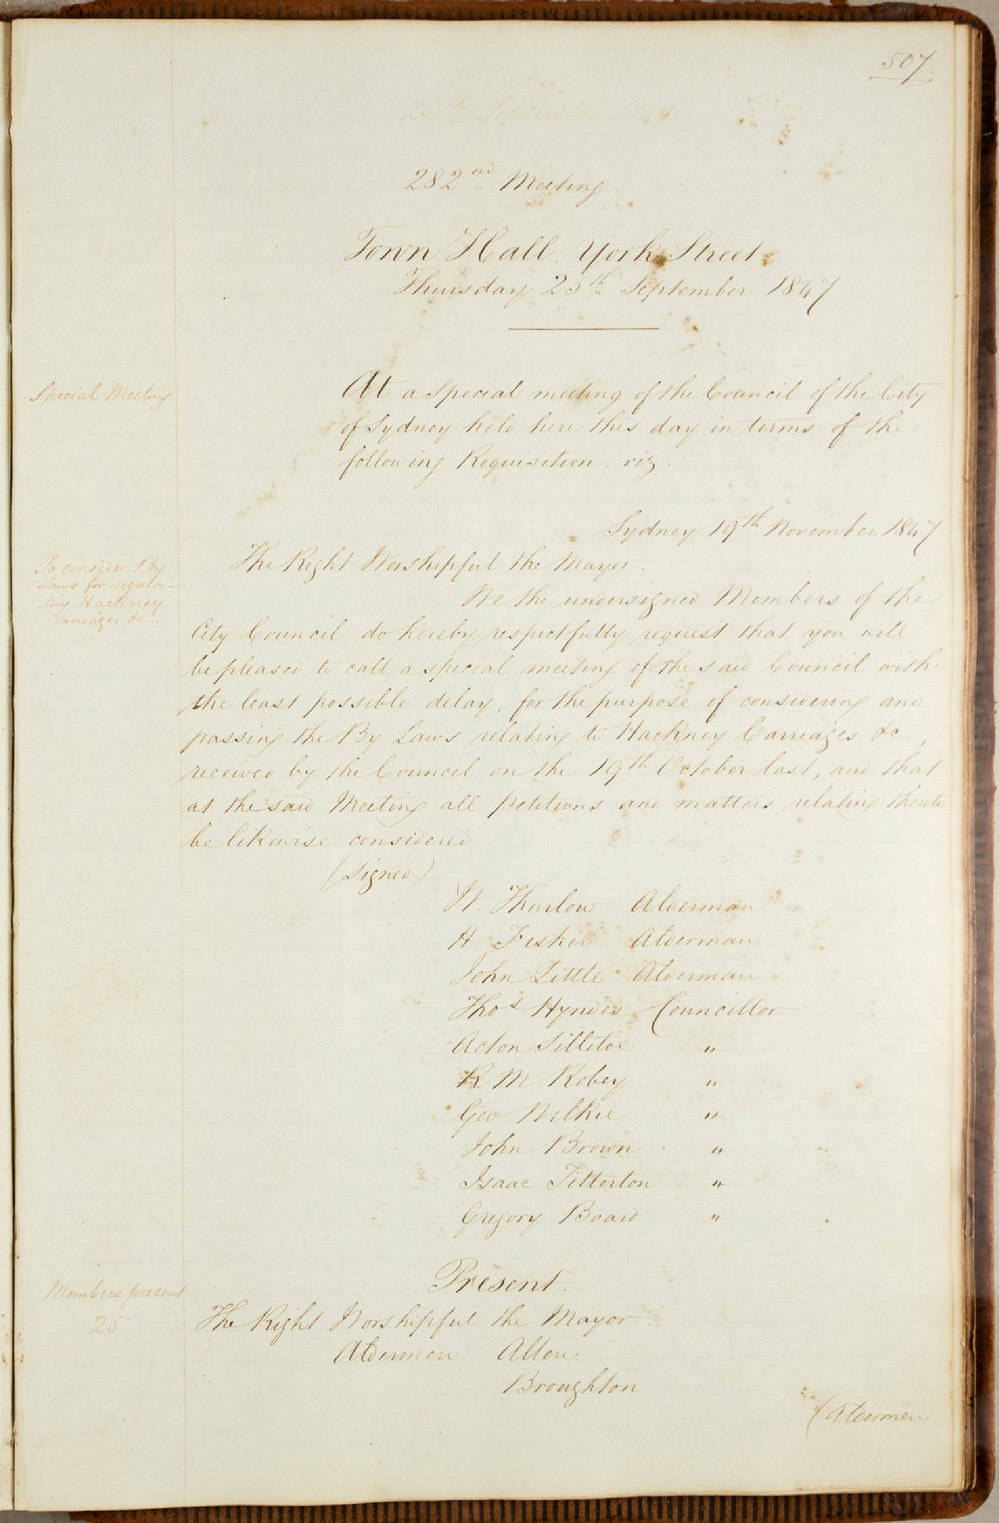 507.
282nd Meeting
Town Hall York Street
Thursday 25th September 1847
Special Meeting
At a special meeting of the Council of the City
of Sydney held here this day in terms of the
following Requisition. viz.
Sydney 19th November 1847
To consider By
Laws for regula-
ting Hackney
Carriages &c.
The Right Worshipful the Mayor.
We the undersigned Members of the
City Council do hereby respectfully request that you will
be pleased to call a special meeting of the said Council with
the least possible delay, for the purpose of considering and
passing the By Laws relating to Hackney Carriages &c,
received by the Council on the 19th October last, and that
at the said Meeting all petitions and matters relating thereto
be likewise considered
(Signed)
W. Thurlow Alderman
H Fisher Alderman
John Little Alderman
Thos Hyndes Councillor
Acton Sillitoe "
R M Robey "
Geo Wilkie "
John Brown "
Isaac Titterton "
Gregory Board "
Present.
Members present
25
The Right Worshipful the Mayor.
Aldermen Allen
Broughton
(Aldermen